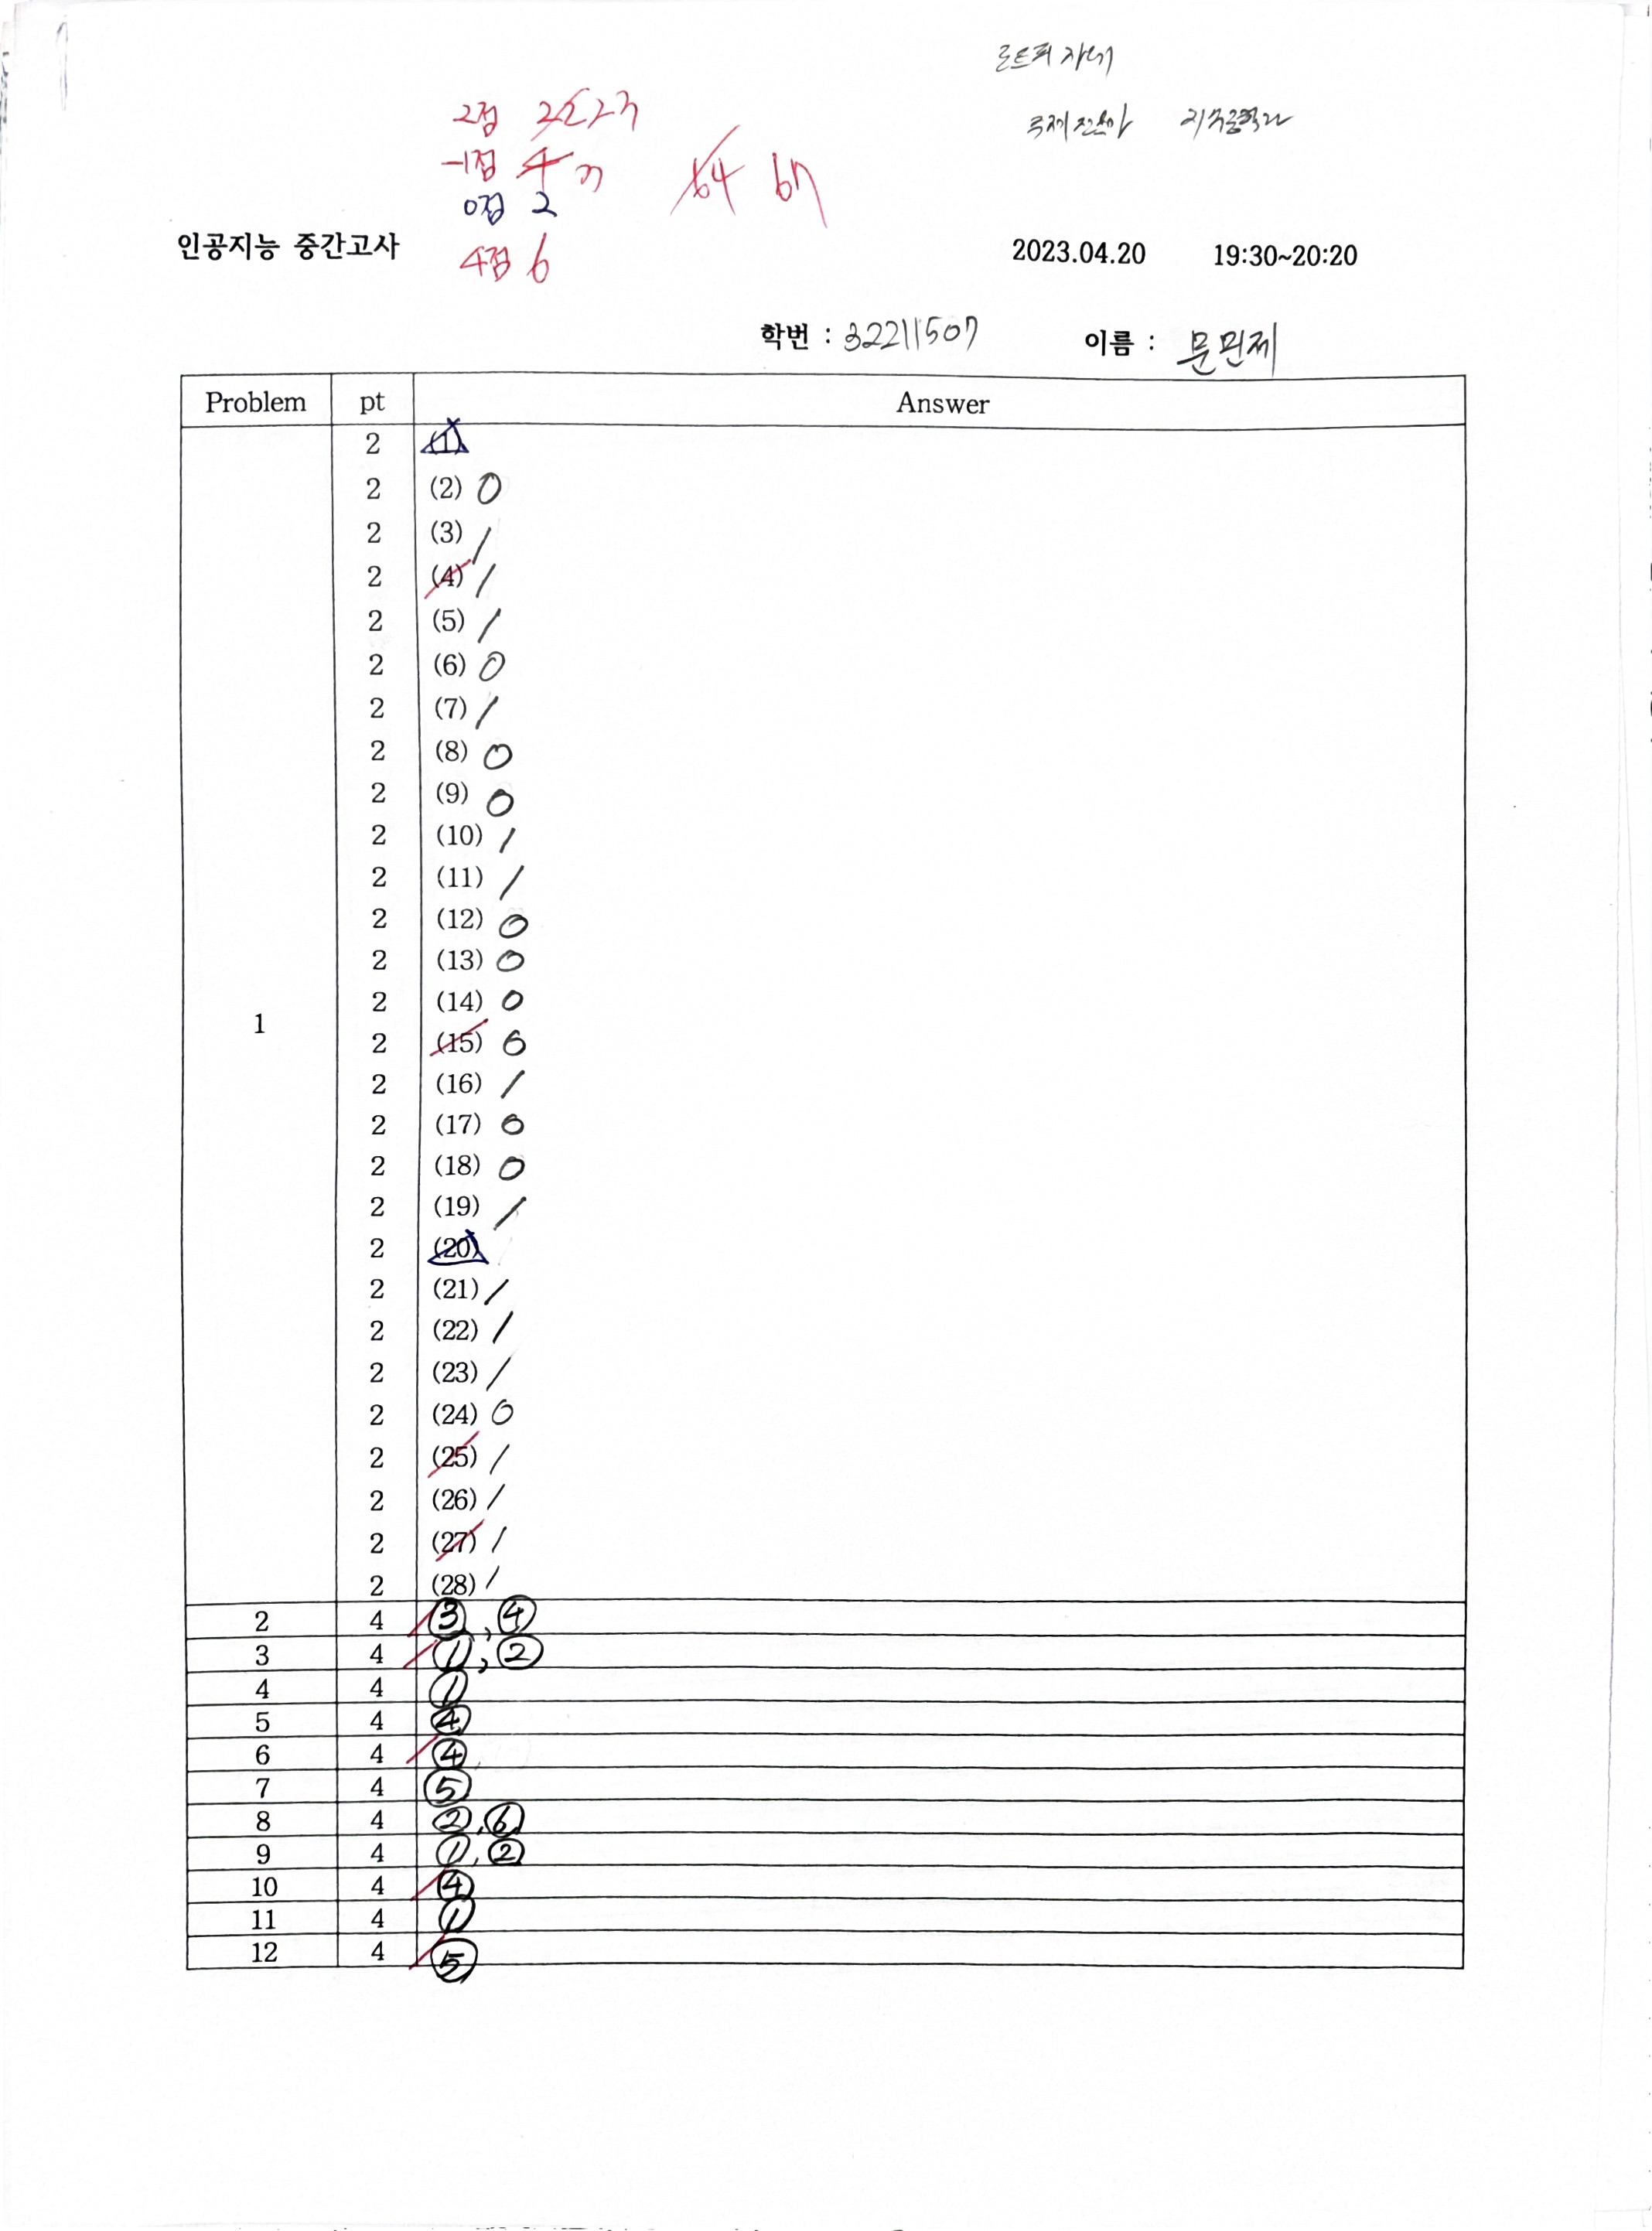 로트피 자데
2점 22 23
국제 진보아
-1점 4 3
64 67
0점 2
인공지능 중간고사
4점 6
2023.04.20 19:30~20:20
학번 : 32211507 이름 : 문민제
Problem pt Answer
2 (1)
2 (2) O
2 (3) /
2 (4) /
2 (5) /
2 (6) O
2 (7) /
2 (8) O
2 (9) O
2 (10) /
2 (11) /
2 (12) O
2 (13) O
2 (14) O
1 2 (15) O
2 (16) /
2 (17) O
2 (18) O
2 (19) /
2 (20)
2 (21) /
2 (22) /
2 (23) /
2 (24) O
2 (25) /
2 (26) /
2 (27) /
2 (28) /
2 4 ③, ④
3 4 ①, ②
4 4 ①
5 4 ④
6 4 ④
7 4 ⑤
8 4 ②, ⑥
9 4 ①, ②
10 4 ④
11 4 ①
12 4 ⑤